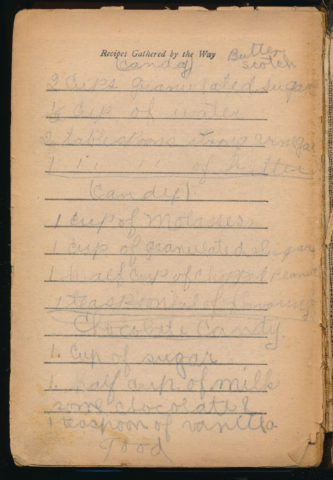 Recipes Gathered by the Way
Butter
scotch
(Candy)
2 Cups granulated sugar
½ Cup of water
2 tablespoons strong vinegar
1 " " " of butter
(Candy)
1 cup of Molasses
1 cup of granulated sugar
1 half cup of chopped peanut
1 teaspoonful of
Chocolate Candy
1 Cup of sugar
1 half cup of milk
some chocolate &
1 teaspoon of vanilla
good